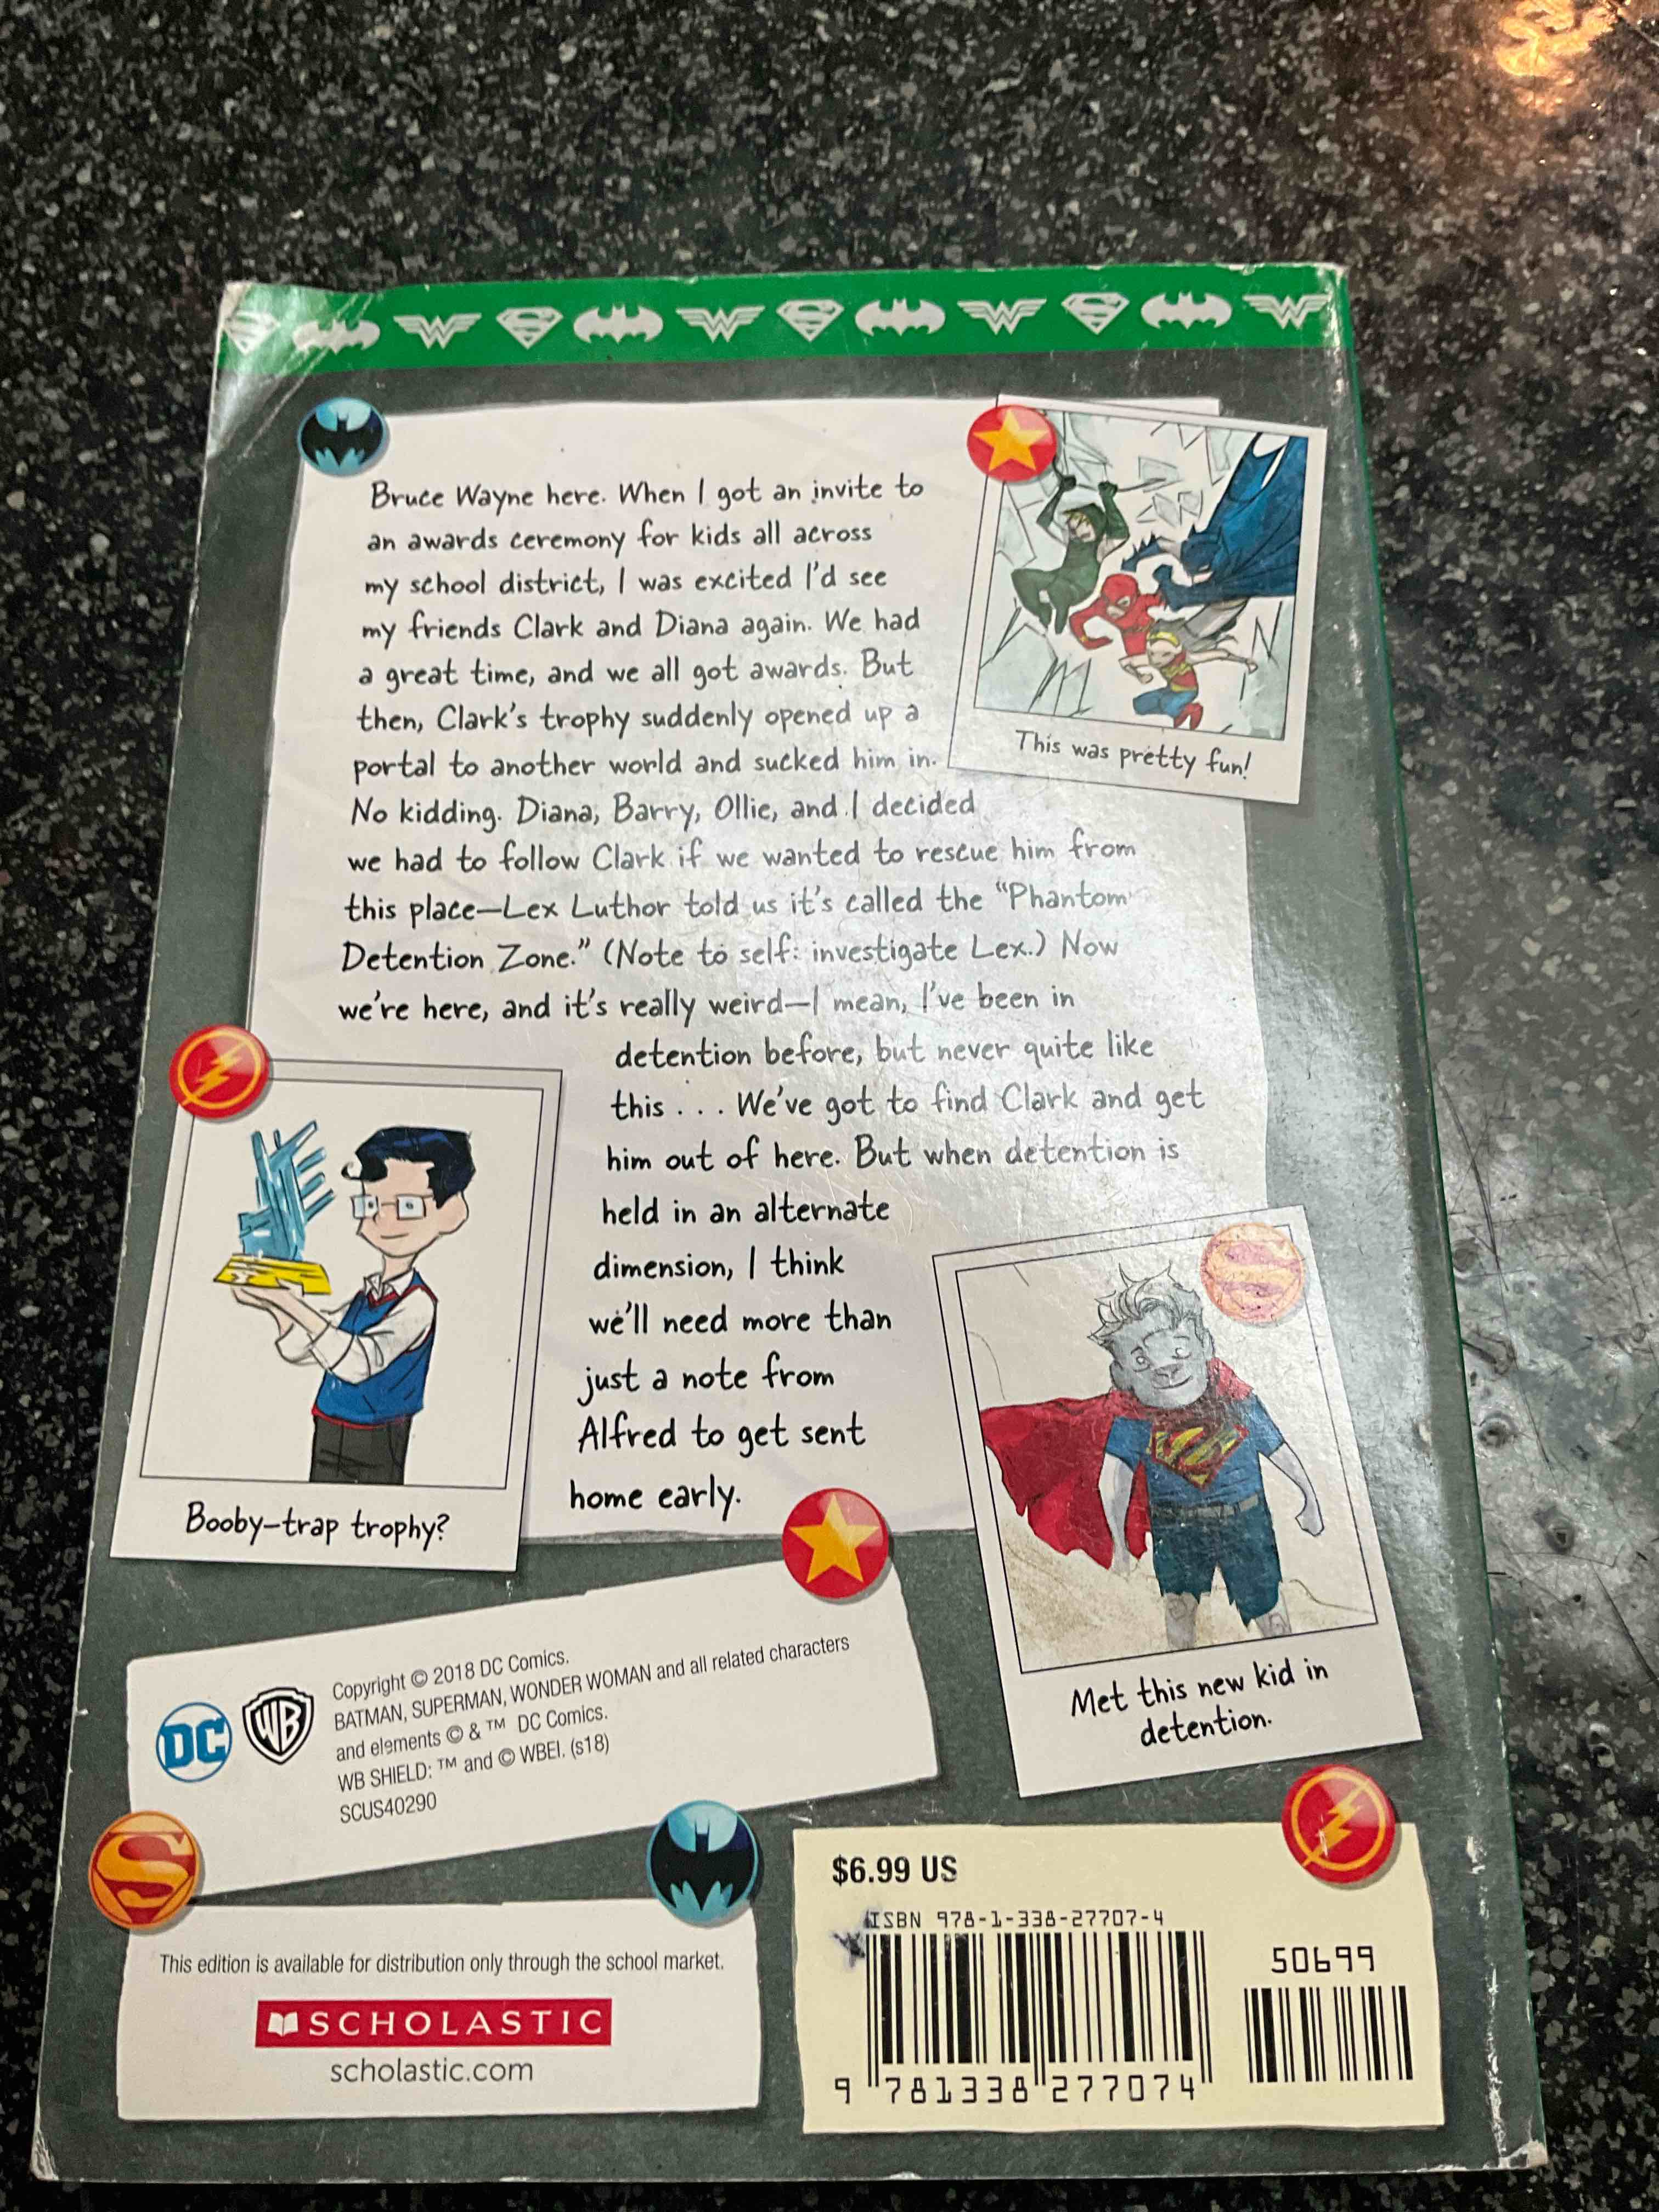 Bruce Wayne here. When I got an invite to
an awards ceremony for kids all across
my school district, I was excited I'd see
my friends Clark and Diana again. We had
a great time, and we all got awards. But
then, Clark's trophy suddenly opened up a
portal to another world and sucked him in.
No kidding. Diana, Barry, Ollie, and I decided
we had to follow Clark if we wanted to rescue him from
this place—Lex Luthor told us it's called the "Phantom
Detention Zone." (Note to self: investigate Lex.) Now
we're here, and it's really weird—I mean, I've been in
detention before, but never quite like
this . . . We've got to find Clark and get
him out of here. But when detention is
held in an alternate
dimension, I think
we'll need more than
just a note from
Alfred to get sent
home early.
This was pretty fun!
Booby-trap trophy?
Met this new kid in
detention.
DC
WB
Copyright © 2018 DC Comics.
BATMAN, SUPERMAN, WONDER WOMAN and all related characters
and elements © & ™ DC Comics.
WB SHIELD: ™ and © WBEI. (s18)
SCUS40290
This edition is available for distribution only through the school market.
SCHOLASTIC
scholastic.com
$6.99 US
ISBN 978-1-338-27707-4
50699
9 781338 277074